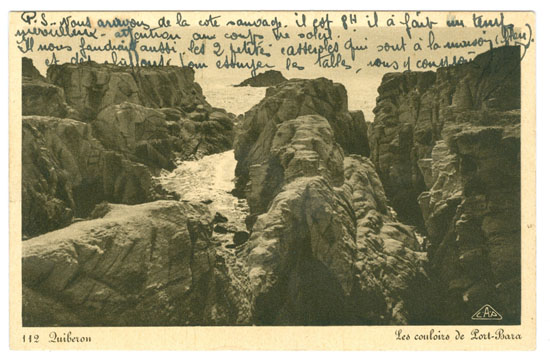 P.S. Nous arrivons de la cote sauvage, il est 8H il à fait un temps
merveilleux, attention au coups de soleil.
Il nous faudrait aussi, les 2 petites casseroles qui sont à la maison (bleu).
et des pour essuyer la
CAP
112 Quiberon
Les couloirs de Port-Bara